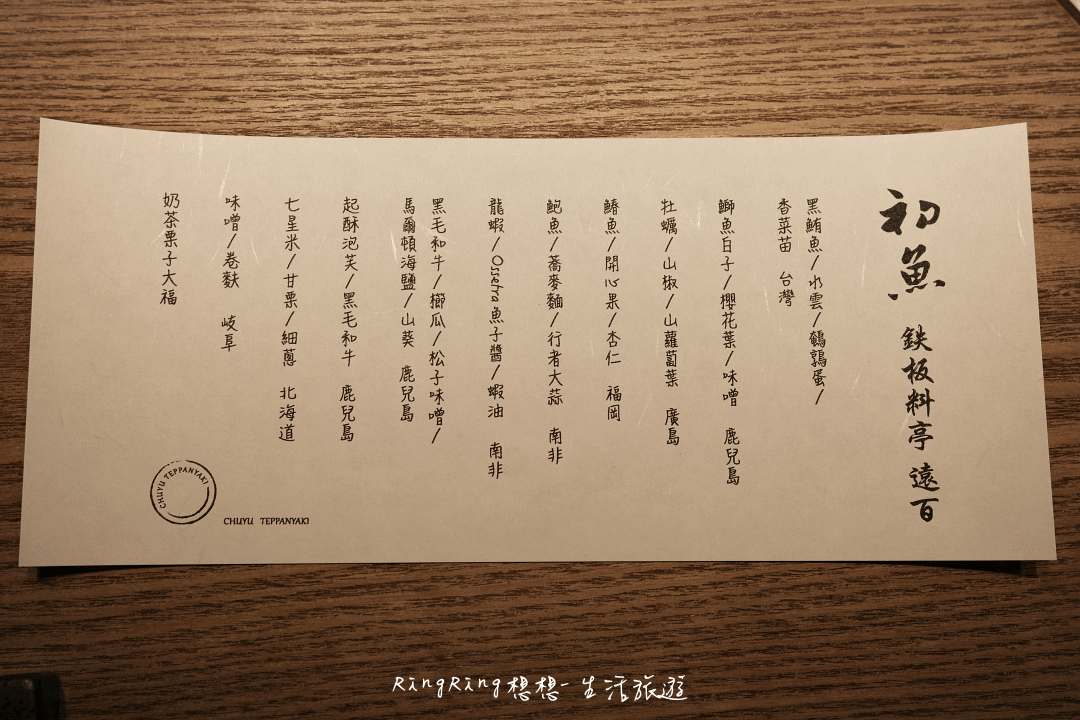 初魚 鉄板料亭 遠百
黑鮪魚/水雲/鵪鶉蛋/
香菜苗 台灣
鰤魚白子/櫻花葉/味噌 鹿兒島
牡蠣/山椒/山蘿蔔葉 廣島
鰆魚/開心果/杏仁 福岡
鮑魚/蕎麥麵/行者大蒜 南非
龍蝦/Ossetra魚子醬/蝦油 南非
黑毛和牛/櫛瓜/松子味噌/
馬爾頓海鹽/山葵 鹿兒島
起酥泡芙/黑毛和牛 鹿兒島
七星米/甘栗/細蔥 北海道
味噌/卷麩 岐阜
奶茶栗子大福
CHUYU TEPPANYAKI
CHUYU TEPPANYAKI
RingRing想想-生活旅遊